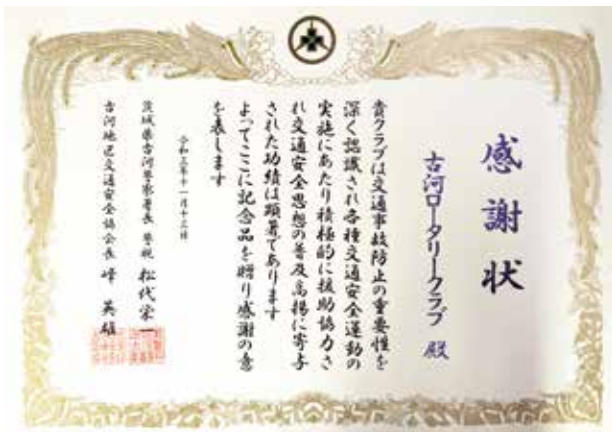 感謝状
古河ロータリークラブ 殿
貴クラブは交通事故防止の重要性を
深く認識され各種交通安全運動の
実施にあたり積極的に援助協力さ
れ交通安全思想の普及高揚に寄与
された功績は顕著であります
よってここに記念品を贈り感謝の意
を表します
令和三年十一月十三日
茨城県古河警察署長 警視 松代栄一
古河地区交通安全協会長 峰 英雄